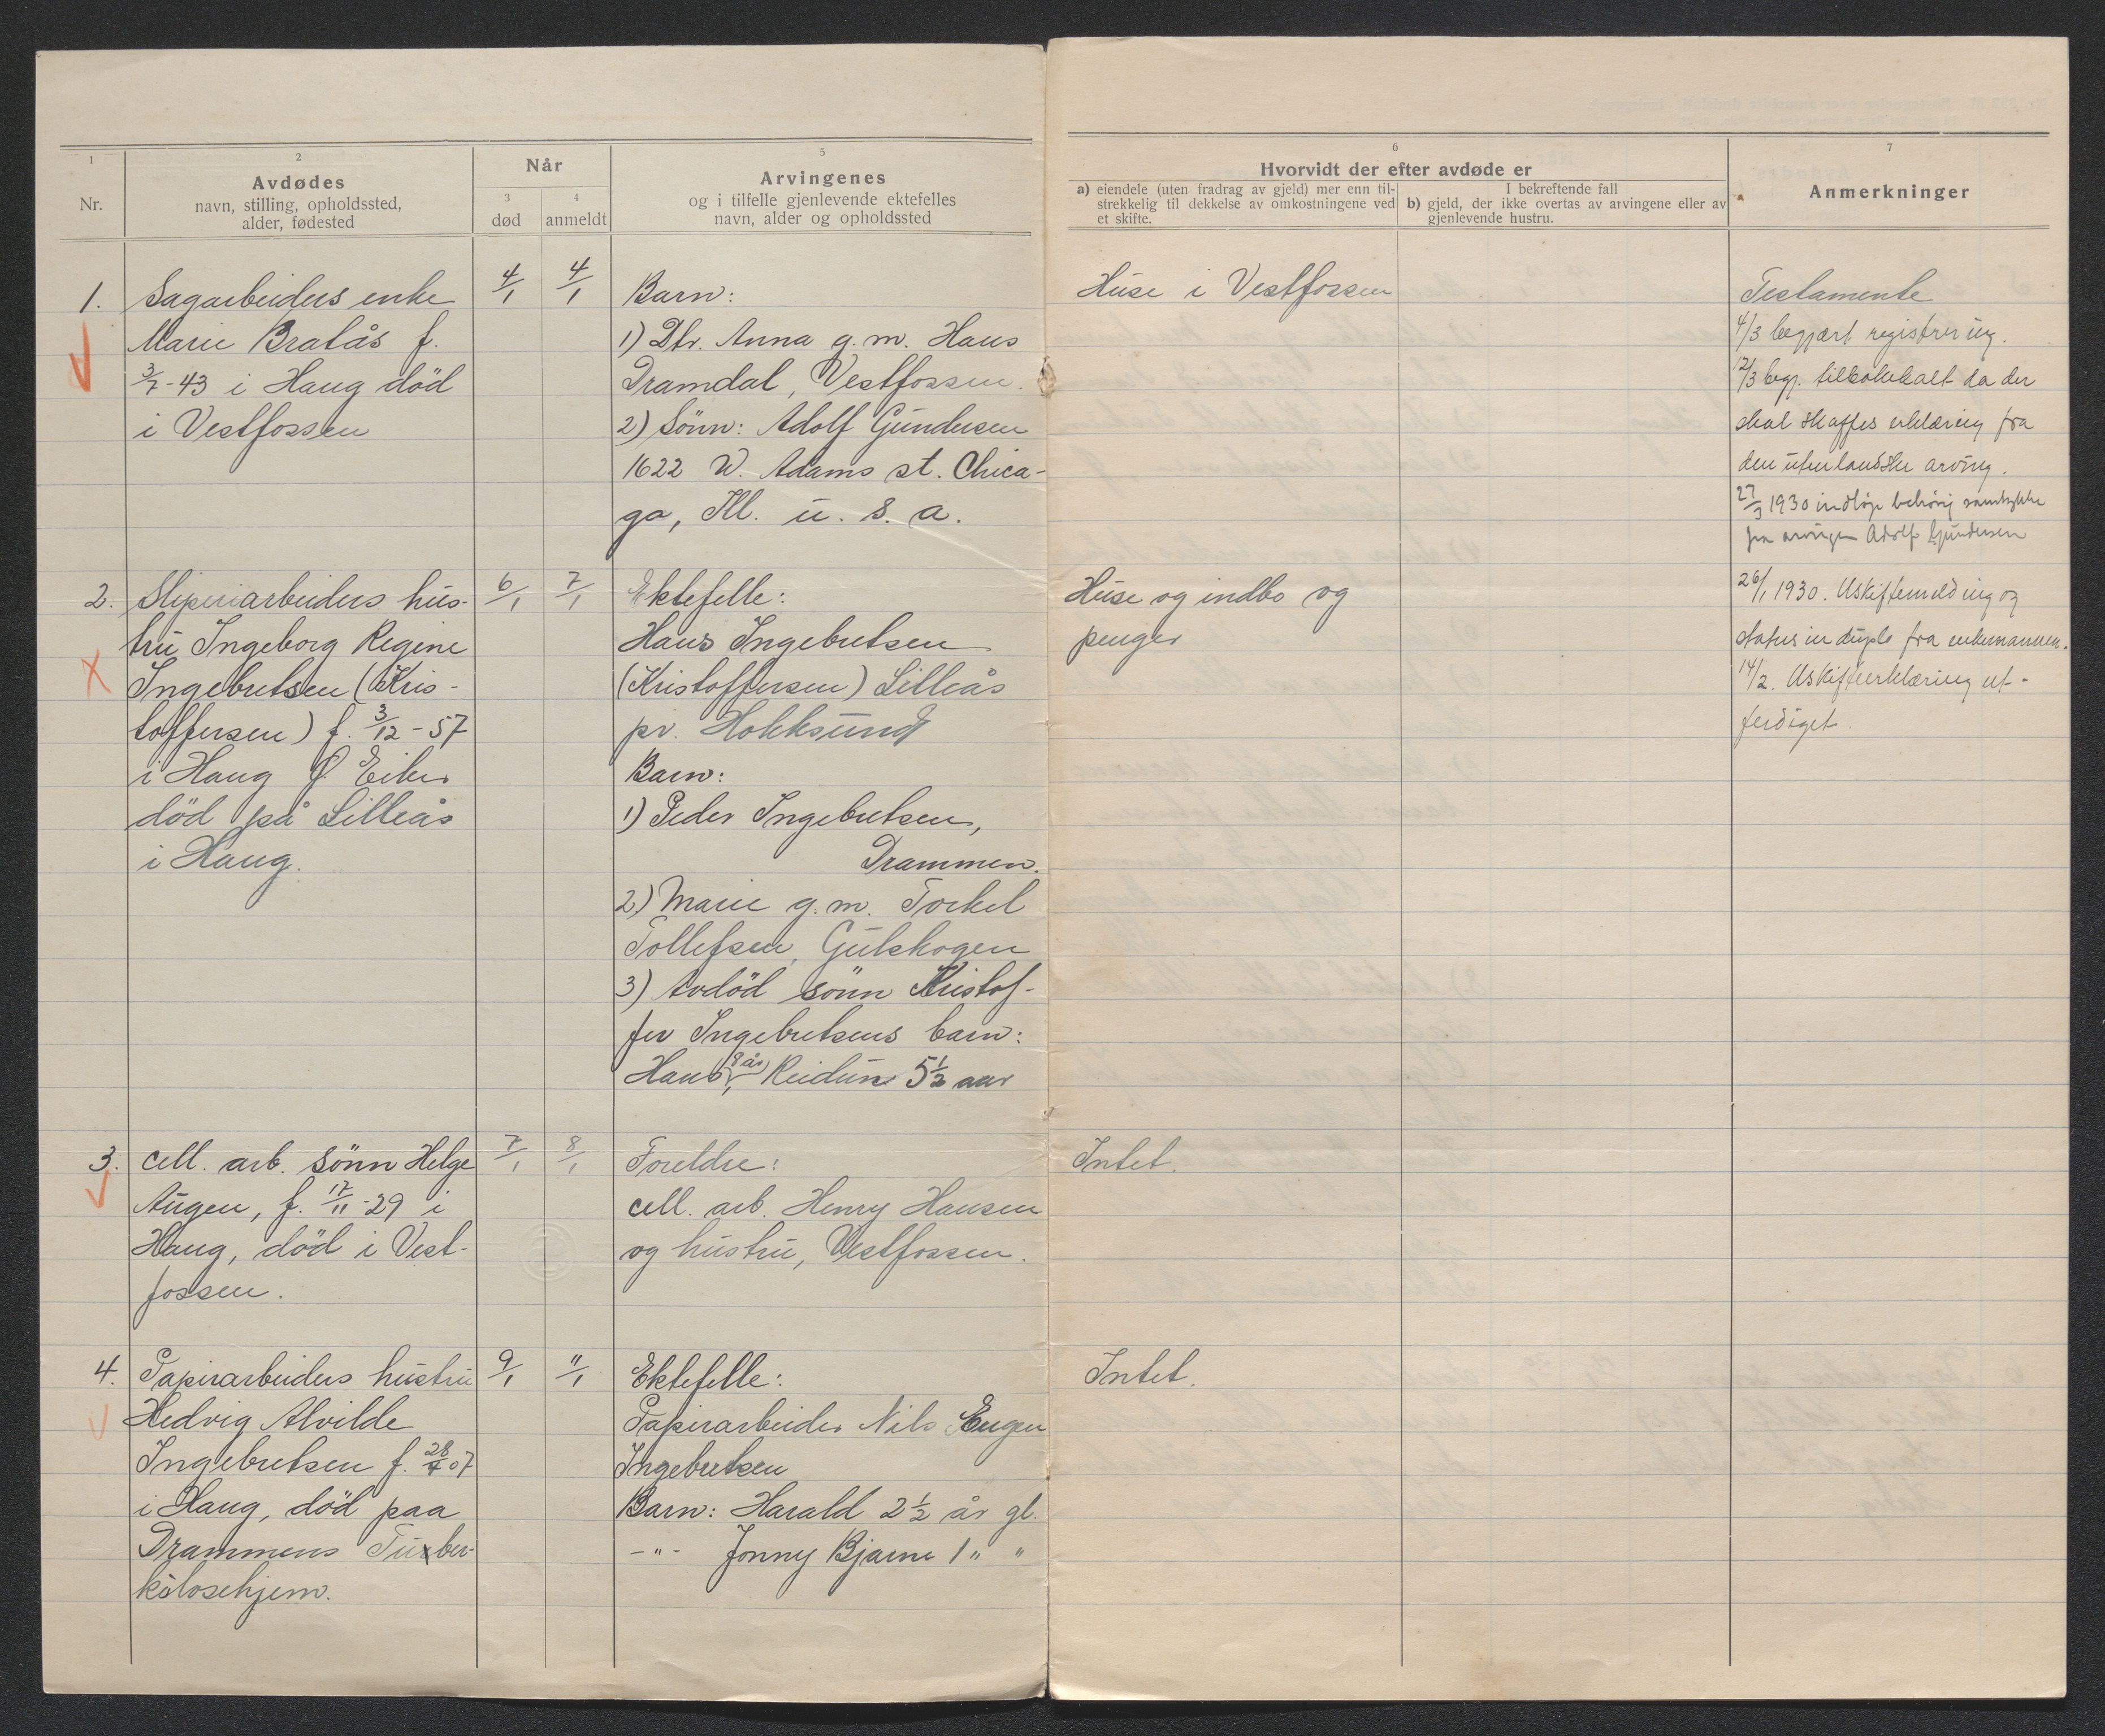 1
Nr.
2
Avdødes
navn, stilling, opholdssted,
alder, fødested
Når
3
død
4
anmeldt
5
Arvingenes
og i tilfelle gjenlevende ektefelles
navn, alder og opholdssted
6
Hvorvidt der efter avdøde er
a) eiendele (uten fradrag av gjeld) mer enn til-
strekkelig til dekkelse av omkostningene ved
et skifte.
I bekreftende fall
b) gjeld, der ikke overtas av arvingene eller av
gjenlevende hustru.
7
Anmerkninger
1.
Sagarbeiders enke
Marie Bratås f.
3/7-43 i Haug död
i Vestfossen
4/1
4/1
Barn:
1) Dtr. Anna g.m. Hans
Dramdal, Vestfossen.
2) Sönn: Adolf Gundersen
1622 W. Adams st. Chica-
go, Ill. u. s. a.
Huse i Vestfossen
Testamente
4/3 begjært registrering.
12/3 begj. tilbakekalt da der
skal skaffes erklæring fra
den utenlandske arving.
27/3 1930 indløp behørig samtykke
fra arvingen Adolf Gundersen
2.
Sliperiarbeiders hus-
tru Ingeborg Regine
Ingebretsen (Kris-
toffersen) f. 3/12-57
i Haug Ø. Eiker
död på Lilleås
i Haug.
6/1
7/1
Ektefelle:
Hans Ingebretsen
(Kristoffersen) Lilleås
pr. Hokksund
Barn:
1) Peder Ingebretsen,
Drammen.
2) Marie g.m. Torkel
Tollefsen, Gulskogen
3) Avdöd sönn Kristof-
fer Ingebretsens barn:
Hans 8 år, Reidun 5 1/2 aar
Huse og indbo og
penger
26/1 1930. Uskiftemelding og
status in duplo fra enkemannen.
14/2. Uskifteerklæring ut-
ferdiget.
3.
cell. arb. sönn Helge
Augen, f. 17/11-29 i
Haug, död i Vest-
fossen.
7/1
8/1
Foreldre:
cell. arb. Henry Hansen
og hustru, Vestfossen.
Intet.
4.
Papirarbeiders hustru
Hedvig Alvilde
Ingebretsen f. 28/4 07
i Haug, död paa
Drammens Tuber-
kolosehjem.
9/1
11/1
Ektefelle:
Papirarbeider Nils Eugen
Ingebretsen
Barn: Harald 2 1/2 år gl.
-"- Jonny Bjarne 1 " "
Intet.